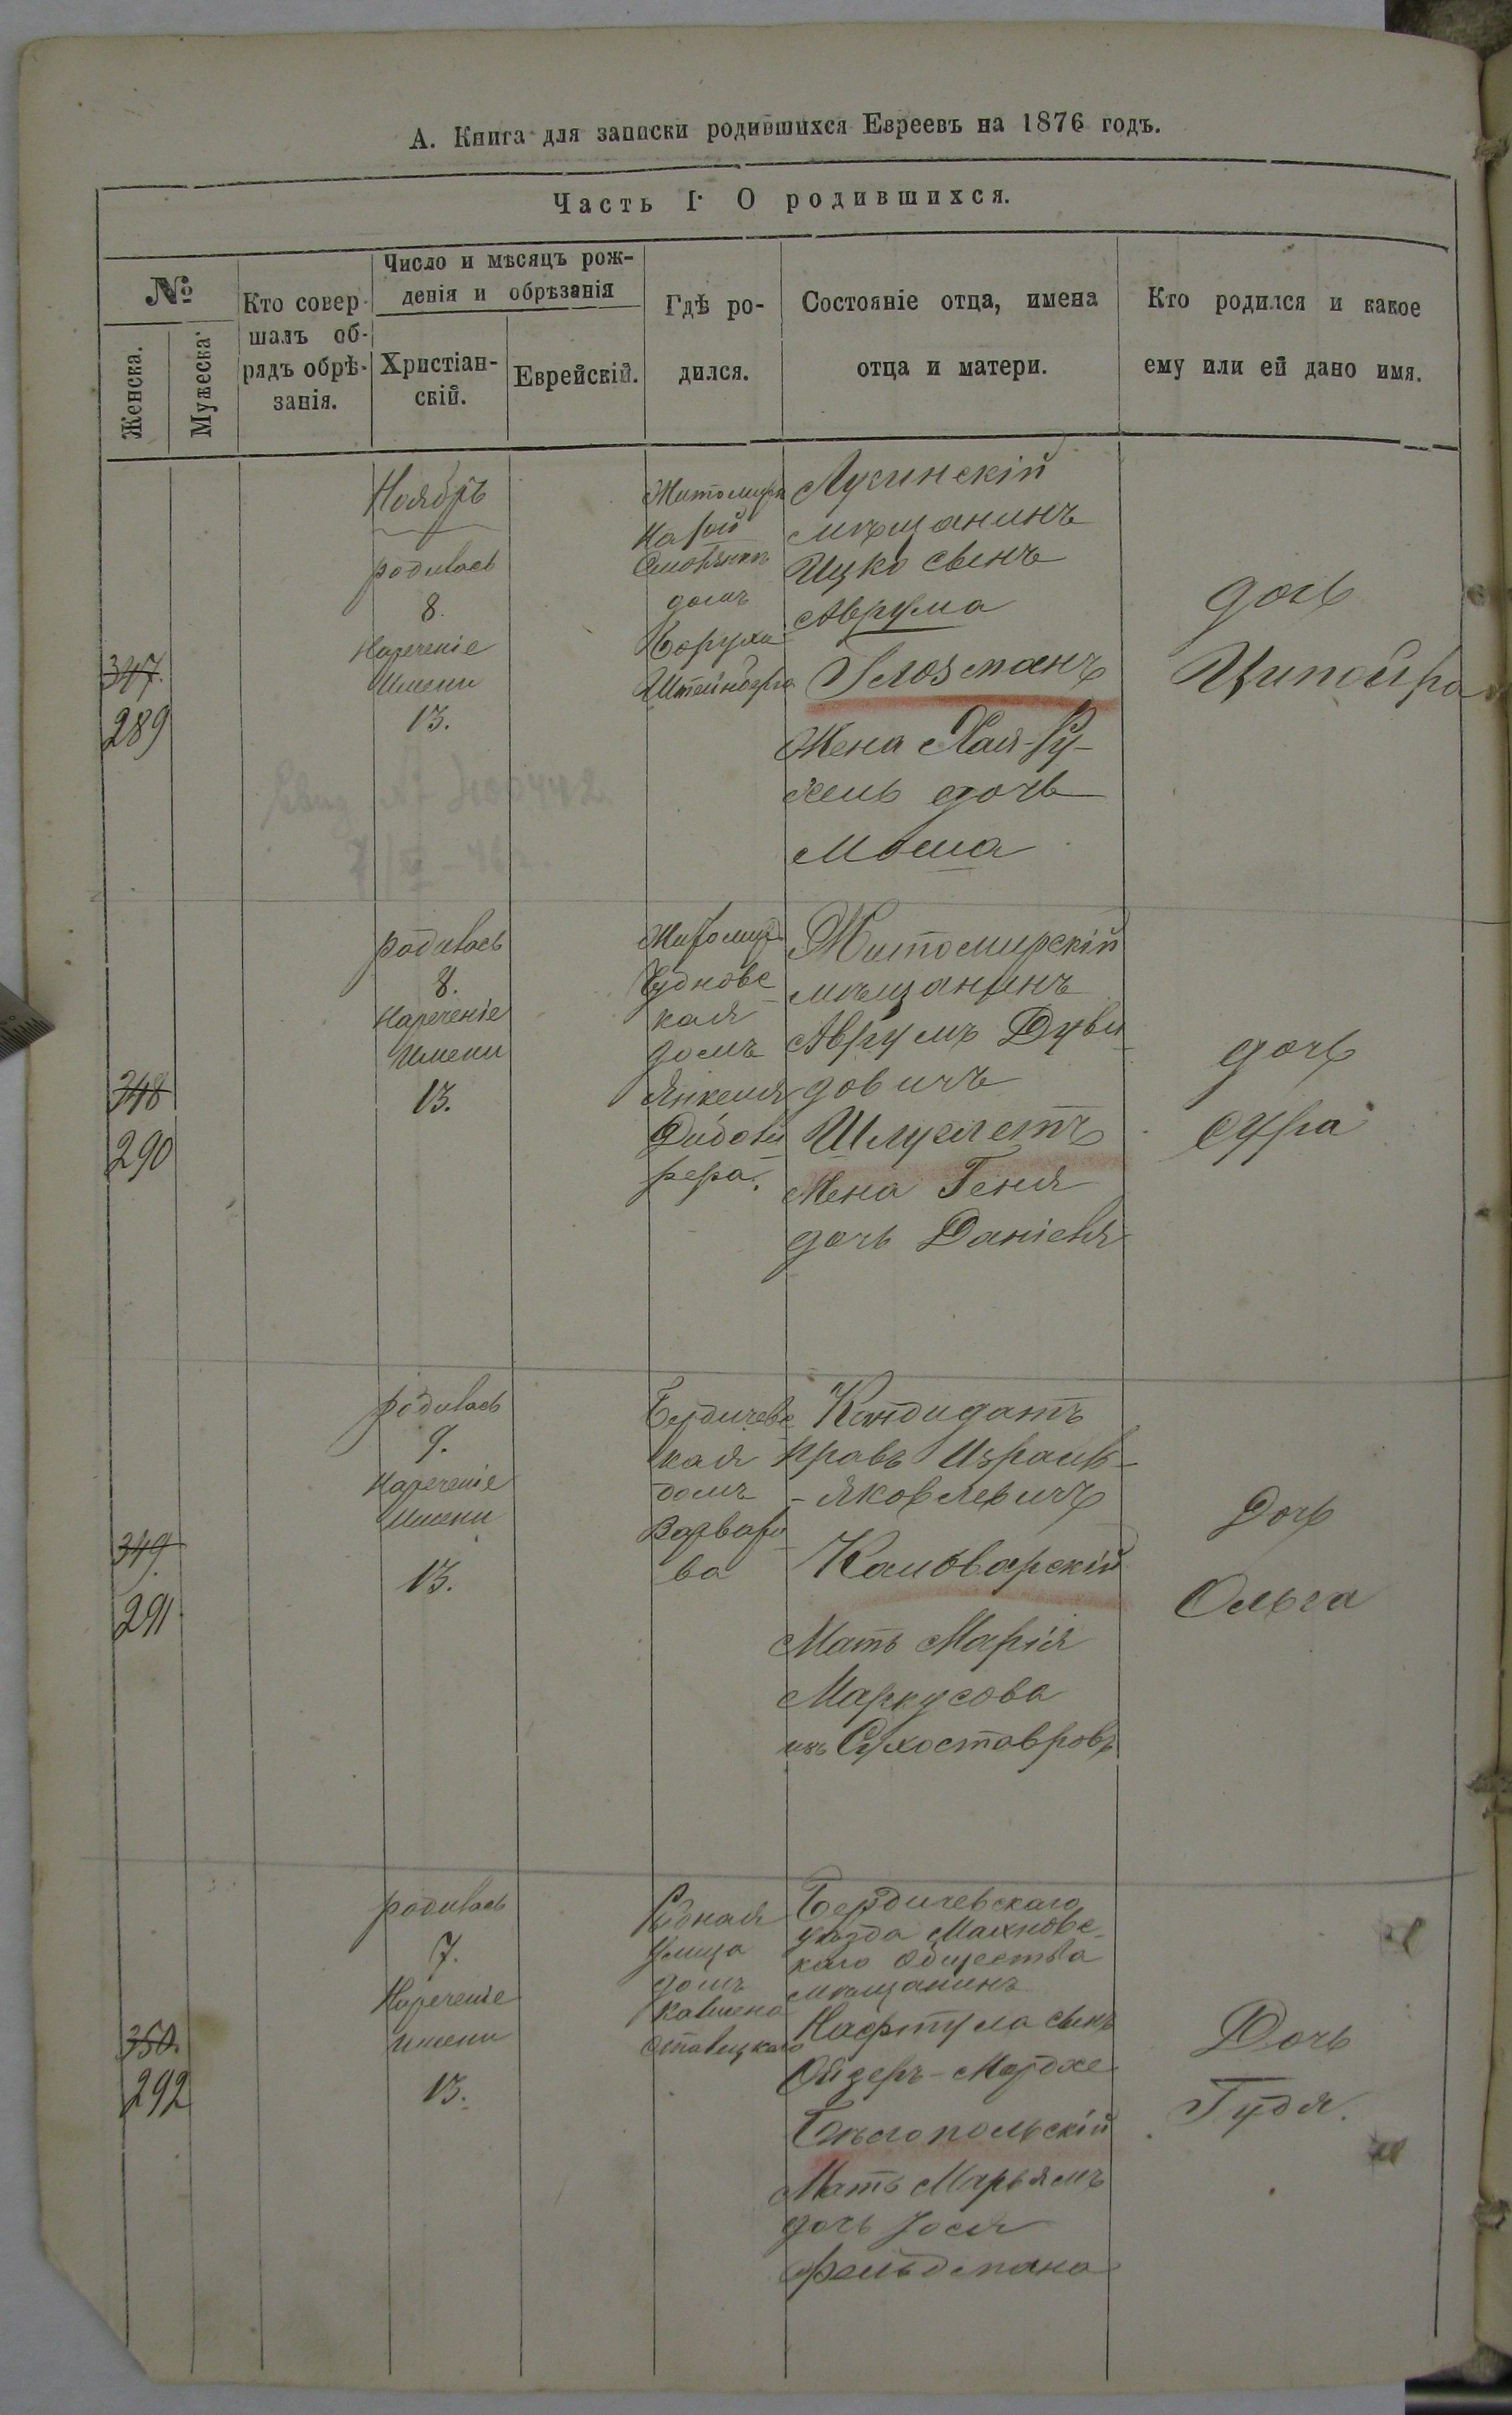 А. Книга для записки родившихся Евреевъ на 1876 годъ.
Часть I. О родившихся.
№
Женска.
Мужеска
Кто совер-
шалъ об-
рядъ обрѣ-
занія.
Число и мѣсяцъ рож-
денія и обрѣзанія
Христіан-
скій.
Еврейскій.
Гдѣ ро-
дился.
Состояніе отца, имена
отца и матери.
Кто родился и какое
ему или ей дано имя.
347.
289
Ноябрь
родилась
8.
Нареченіе
Имени
13.
Житомиръ
домъ
Боруха
Штейнберга
Лугинскій
мѣщанинъ
Ицко сынъ
Аврума
Глозманъ
Жена Хая-Ру-
хель дочь
Мошка
дочь
Ципойра
348
290
родилась
8.
Нареченіе
Имени
13.
Житомиръ
Чудновс
кая
домъ
Янкеля
Житомирскій
мѣщанинъ
Аврумъ Дуви
довичъ
Шлуглетъ
Жена Геня
дочь Даніеля
дочь
Сура
349.
291
родилась
9.
Нареченіе
Имени
13.
Бердичевс
кая
домъ
Варваро
ва
Кандидатъ
Правъ Израиль-
-Яковлевичъ
Мать Марія
Маркусова
изъ Сухоставровъ
Дочь
Ольга
350.
292
родилась
7.
Нареченіе
имени
13.
Рыбная
Улица
домъ
Бердичевскаго
уѣзда Махновс-
каго Общества
мѣщанинъ
Нафтула сынъ
Ойзеръ-Мордхе
Бѣлопольскій
Мать Марьямъ
дочь Іося
Фельдмана
Дочь
Гудя.